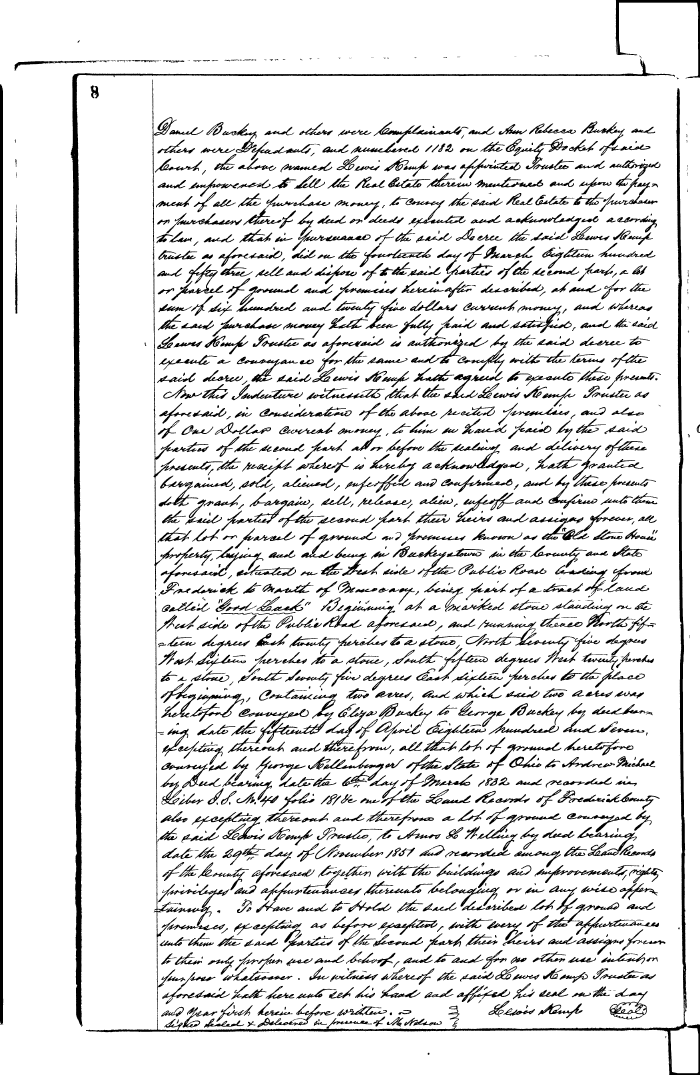 8
Daniel Buckey and others were Complainants, and Ann Rebecca Buckey and
others were Defendants, and numbered 1182 on the Equity Docket of said
Court, the above named Lewis Kemp was appointed Trustee and authorized
and empowered to sell the Real Estate therein mentioned and upon the pay-
ment of all the purchase money, to convey the said Real Estate to the purchaser
or purchasers thereof by deed or deeds executed and acknowledged according
to law, and that in pursuance of the said Decree the said Lewis Kemp
trustee as aforesaid, did on the fourteenth day of March Eighteen hundred
and fifty three sell and dispose of to the said parties of the second part, a lot
or parcel of ground and premises herein after described, at and for the
sum of six hundred and twenty five dollars current money, and whereas
the said purchase money hath been fully paid and satisfied, and the said
Lewis Kemp Trustee as aforesaid is authorized by the said decree to
execute a conveyance for the same and to comply with the terms of the
said decree, the said Lewis Kemp hath agreed to execute these presents.
Now this Indenture witnesseth that the said Lewis Kemp Trustee as
aforesaid, in consideration of the above recited premises, and also
of One Dollar current money, to him in hand paid by the said
parties of the second part at or before the sealing and delivery of these
presents, the receipt whereof is hereby acknowledged, hath granted
bargained, sold, aliened, enfeoffed and confirmed, and by these presents
doth grant, bargain, sell, release, alien, enfeoff and confirm unto them
the said parties of the second part their heirs and assigns forever, all
that lot or parcel of ground and premises known as the "Old Stone House"
property, laying and and being in Buckeystown in the County and State
aforesaid, situated on the West side of the Public Road leading from
Frederick to mouth of Monocacy, being part of a tract of land
called "Good Luck" Beginning at a marked stone standing on the
West side of the Public Road aforesaid, and running thence North fif-
=teen degrees East twenty perches to a stone, North Seventy five degrees
West Sixteen perches to a stone, South fifteen degrees West twenty perches
to a stone, South Seventy five degrees East sixteen perches to the place
of beginning, Containing two acres, and which said two acres was
heretofore conveyed by Eliza Buckey to George Buckey by deed bear-
=ing, date the fifteenth day of April Eighteen hundred and Seven,
excepting thereout and therefrom, all that lot of ground heretofore
conveyed by George Kellenberger of the State of Ohio to Andrew Michael
by Deed bearing date the 6th day of March 1832 and recorded in
Liber J.S. No. 40 folio one of the Land Records of Frederick County
also excepting thereout and therefrom a lot of ground conveyed by
the said Lewis Kemp Trustee, to Amos L Welling by deed bearing
date the 29th day of November 1851 and recorded among the Land Records
of the County aforesaid together with the buildings and improvements, rights,
privileges and appurtenances thereunto belonging or in any wise apper-
=taining. To Have and to Hold the said described lot of ground and
premises, excepting as before excepted, with every of the appurtenances
unto them the said parties of the second part their heirs and assigns forever
to their only proper use and behoof, and to and for no other use intent, or
purpose whatsoever. In witness whereof the said Lewis Kemp Trustee as
aforesaid hath here unto set his hand and affixed his seal on the day
and year first herein before written.
Signed Sealed & Delivered in presence of M. Nelson
Lewis Kemp Seal